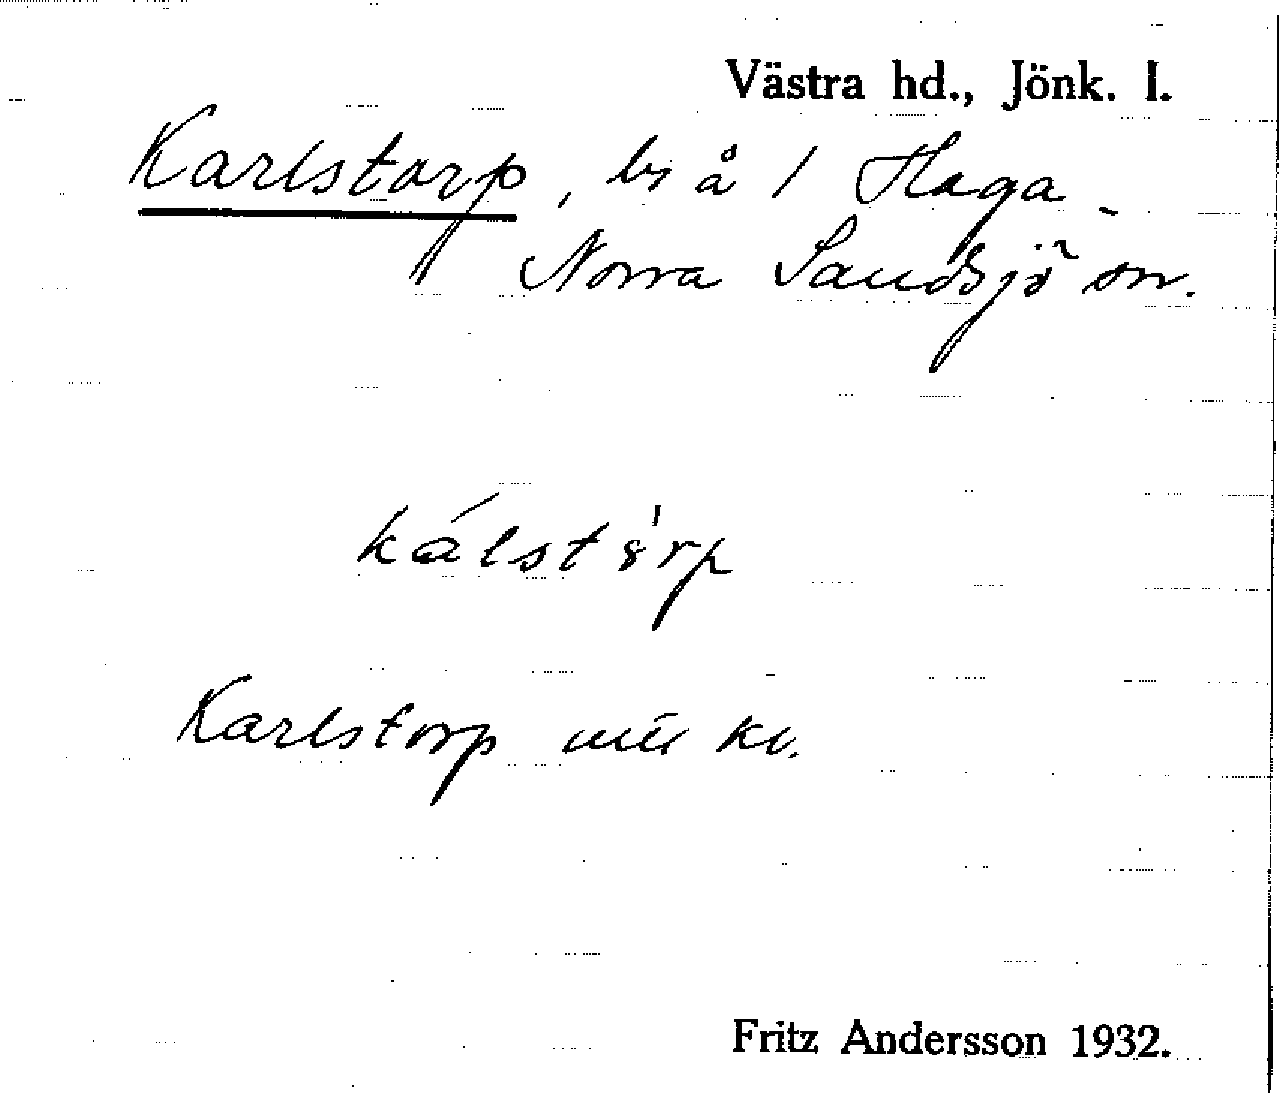 Västra hd., Jönk. l.
Karlstorp, bs å 1 Haga
Norra Sandsjö sn.
Karlstorp
Fritz Andersson 1932.